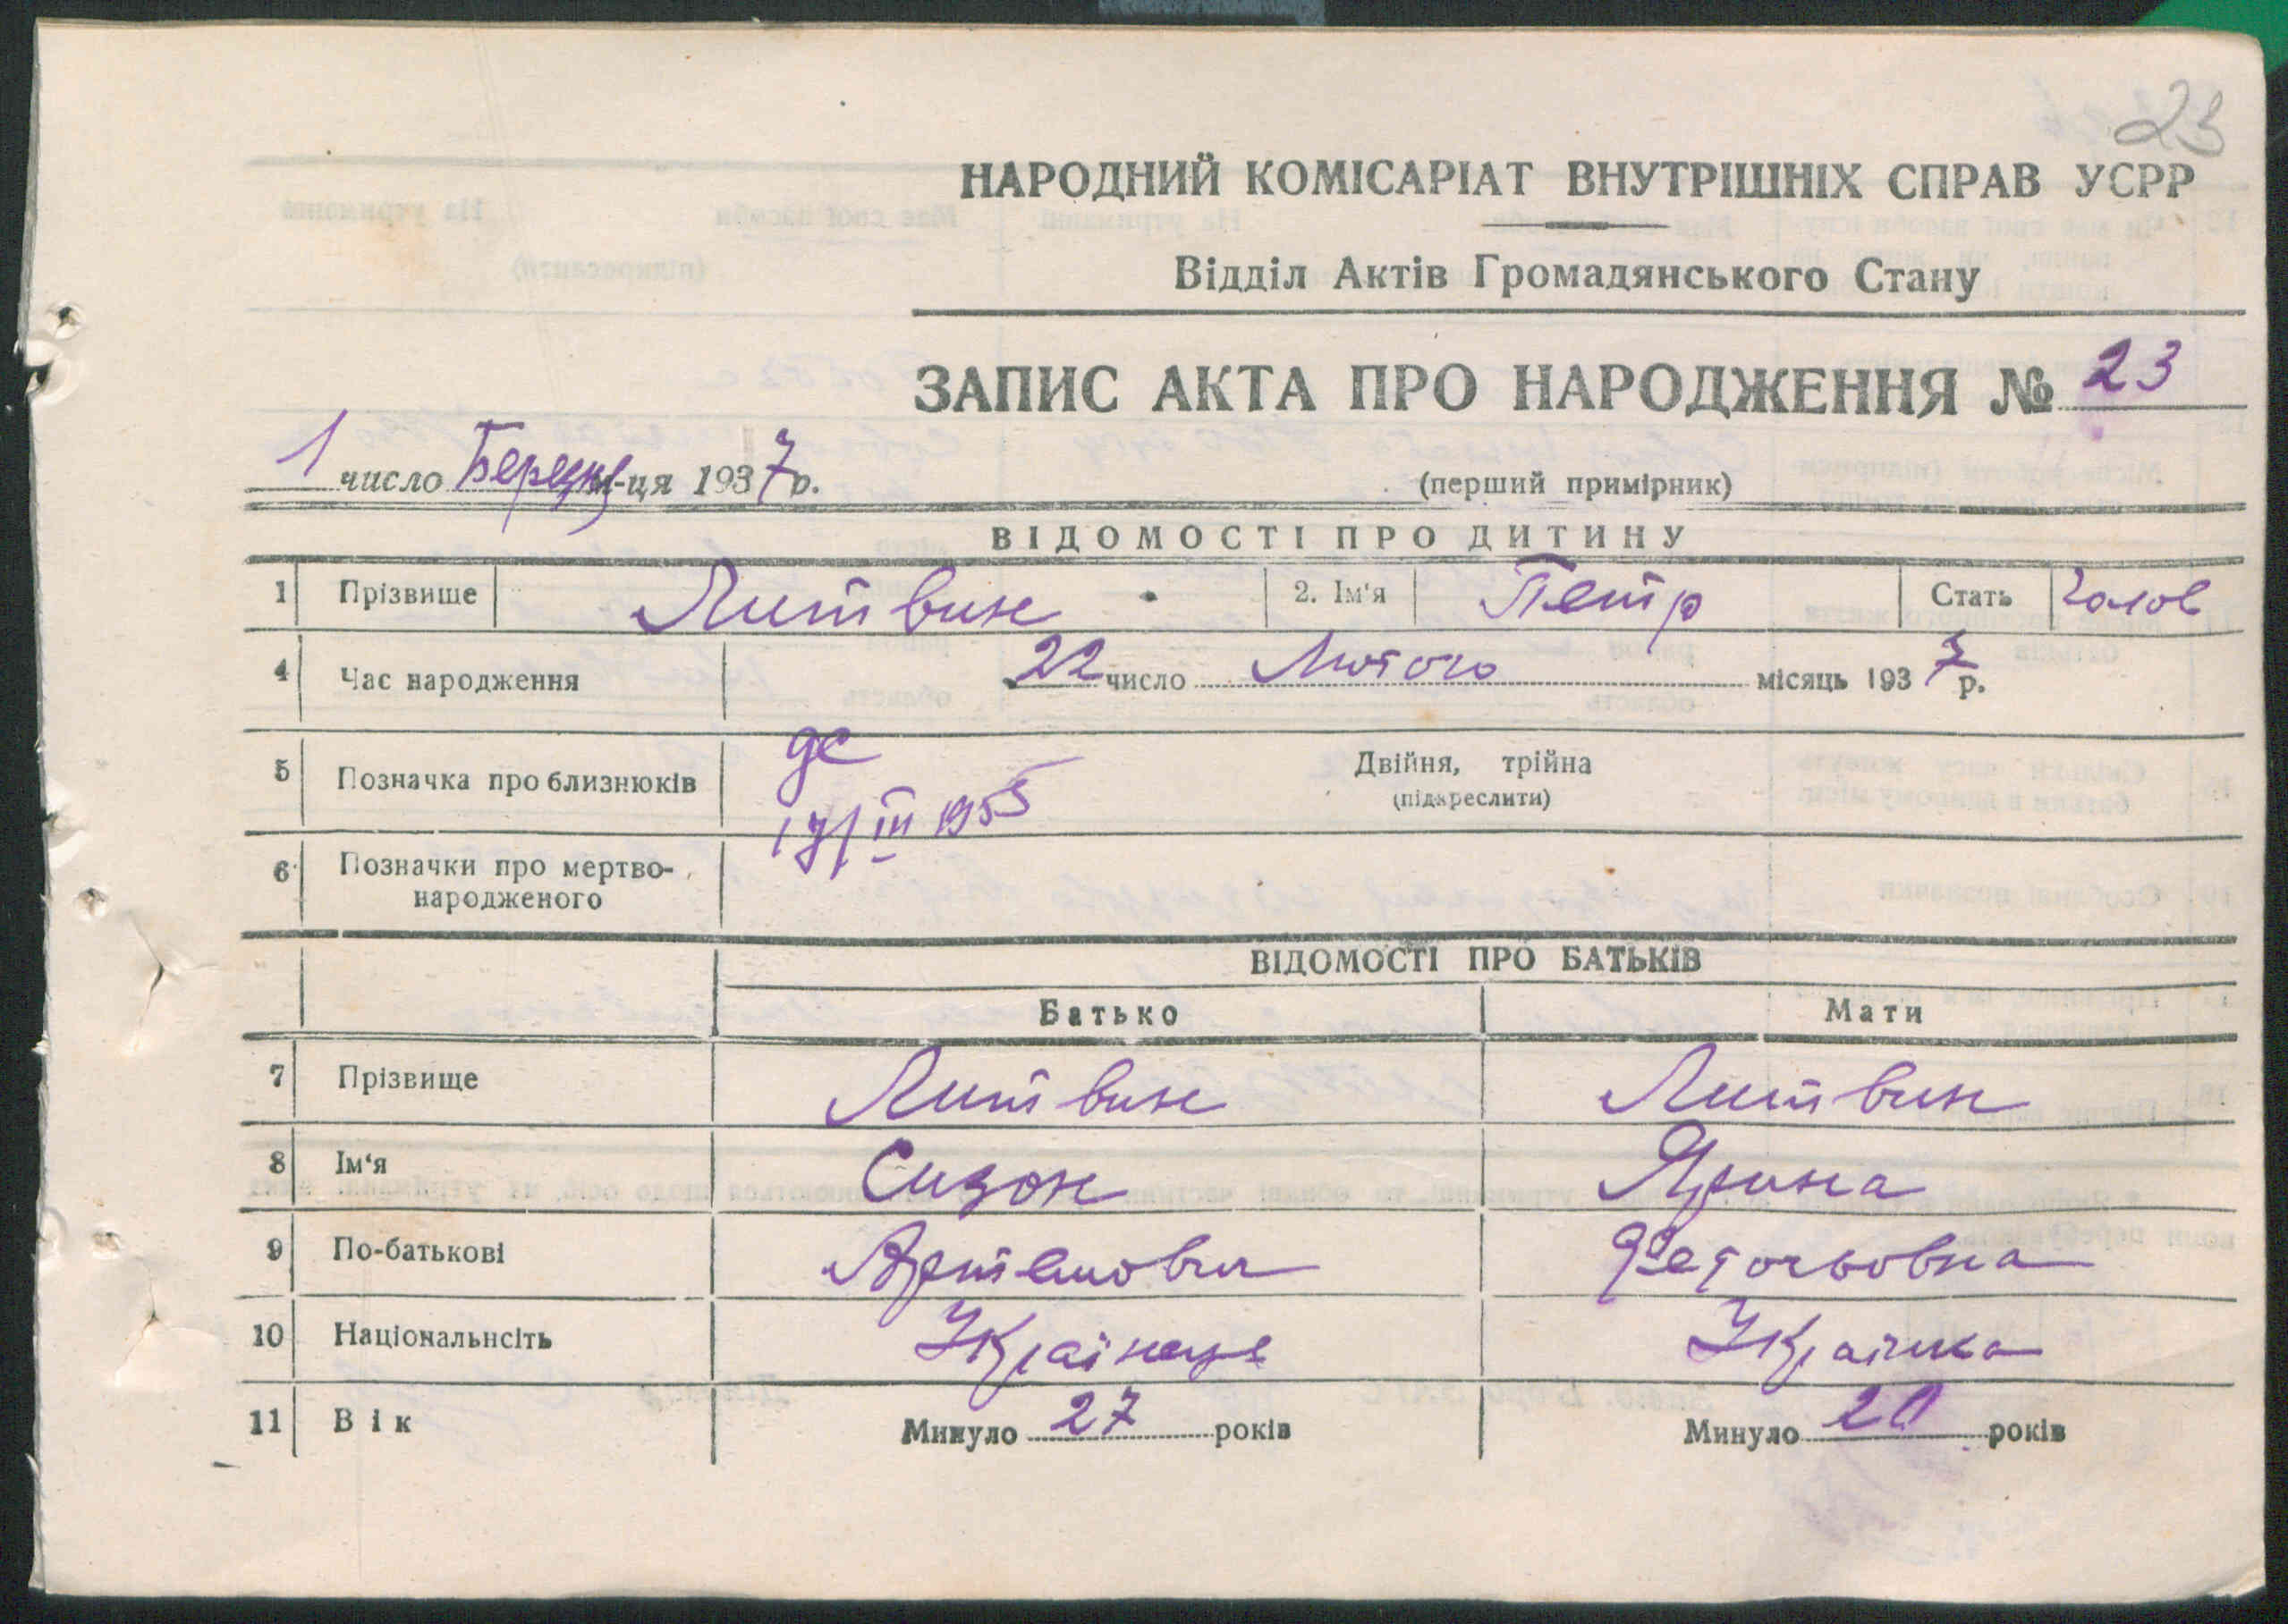 23
НАРОДНИЙ КОМІСАРІАТ ВНУТРІШНІХ СПРАВ УСРР
Відділ Актів Громадянського Стану
ЗАПИС АКТА ПРО НАРОДЖЕННЯ № 23
1 число Березня м-ця 1937 р. (перший примірник)
ВІДОМОСТІ ПРО ДИТИНУ
1 Прізвище Литвин 2. Ім'я Петр Стать Чолов
4 Час народження 22 число Лютого місяць 1937 р.
5 Позначка про близнюків Двійня, трійна
(підкреслити)
III 1955
6 Позначки про мертво-
народженого
ВІДОМОСТІ ПРО БАТЬКІВ
Батько Мати
7 Прізвище Литвин Литвин
8 Ім'я Сизон Ярина
9 По-батькові Артемович
10 Національнсіть Українець Українка
11 Вік Минуло 27 років Минуло 20 років